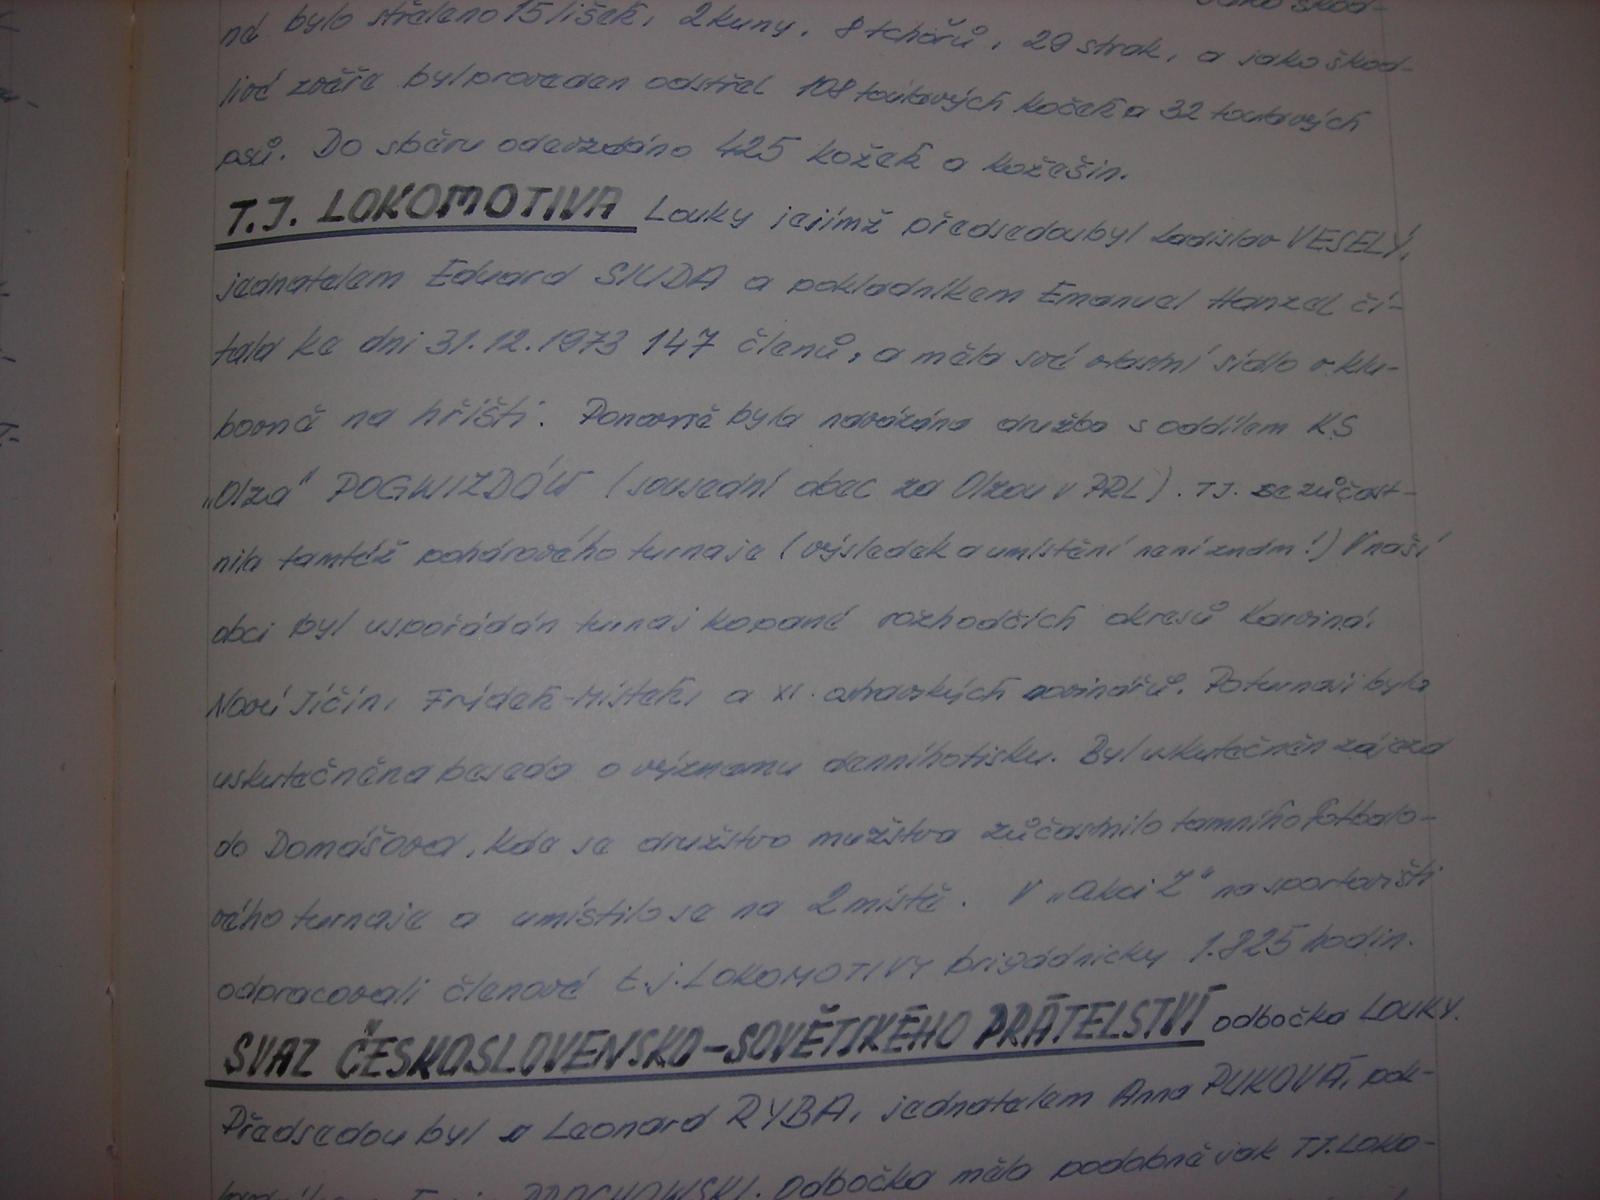 jako škod-
ně bylo střeleno 15 lišek, 2 kuny, 8 tchořů, 29 strak, a jako škod-
livé zvěře byl proveden odstřel 108 toulavých koček a 32 toulavých
psů. Do sběru odevzdáno 425 kožek a kožešin.
T.J. LOKOMOTIVA Louky jejímž předsedou byl Ladislav VESELÝ,
jednatelem Eduard SIUDA a pokladníkem Emanuel Hanzel čí-
tala ke dni 31.12.1973 147 členů, a měla své vlastní sídlo v klu-
bovně na hřišti. byla navázána družba s oddílem KS
„Olza" POGWIZDÓW (sousední obec za Olzou v PRL). TJ. se zúčast-
nila tamtéž pohárového turnaje (výsledek a umístění není znám!) V naší
obci byl uspořádán turnaj kopané rozhodčích okresů Karviná,
Nový Jičín, Frýdek-Místek, a XI. ostravských novinářů. Po turnaji byla
uskutečněna beseda o významu denního tisku. Byl uskutečněn zájezd
do Domášova, kde se družstvo mužstva zúčastnilo tamního fotbalo-
vého turnaje a umístilo se na 2 místě. V „akci Z" na sportovišti
odpracovali členové t.j. LOKOMOTIVY brigádnicky 1.825 hodin.
SVAZ ČESKOSLOVENSKO-SOVĚTSKÉHO PŘÁTELSTVÍ odbočka LOUKY.
Předsedou byl Leonard RYBA, jednatelem Anna PUKOVÁ, pok-
odbočka měla podobně jak TJ. LOKO-